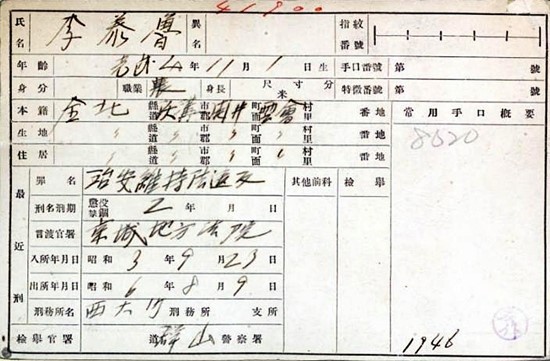 41800
氏名 李泰魯 異名 指紋番號
年齡 4年11月1日生 手口番號 第 號
身分 職業 農 身長 尺寸分 米 特徵番號 第 號
本籍 全北 縣道 市郡 町面 雲 村里 番地 常用手口概要
生地 〃 縣道 〃 市郡 〃 町面 〃 村里 番地 8620
住居 〃 縣道 〃 市郡 〃 町面 〃 村里 番地
最近刑
罪名 治安維持法違反 其他前科 檢擧
刑名刑期 懲役 禁錮 2年 月 日
言渡官署 京城地方法院
入所年月日 昭和3年9月23日
出所年月日 昭和6年8月9日
刑務所名 西大門 刑務所 支所
檢擧官署 道 山 警察署
1946